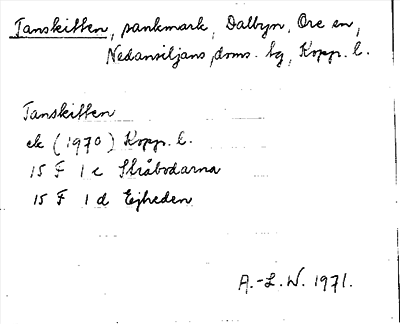 Tanskitten, sankmark, Dalbyn, Ore en,
Nedansiljans doms. tg, Kopp. l.
Tanskitten
ek (1970) Kopp. l.
15 F 1 c Skråbodarna
15 F 1 d Ejheden
A.-L.W. 1971.